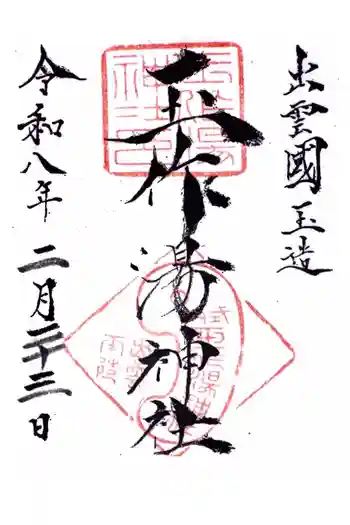 出雲國玉造
玉作湯神社
令和八年二月二十三日
玉作湯
神社印